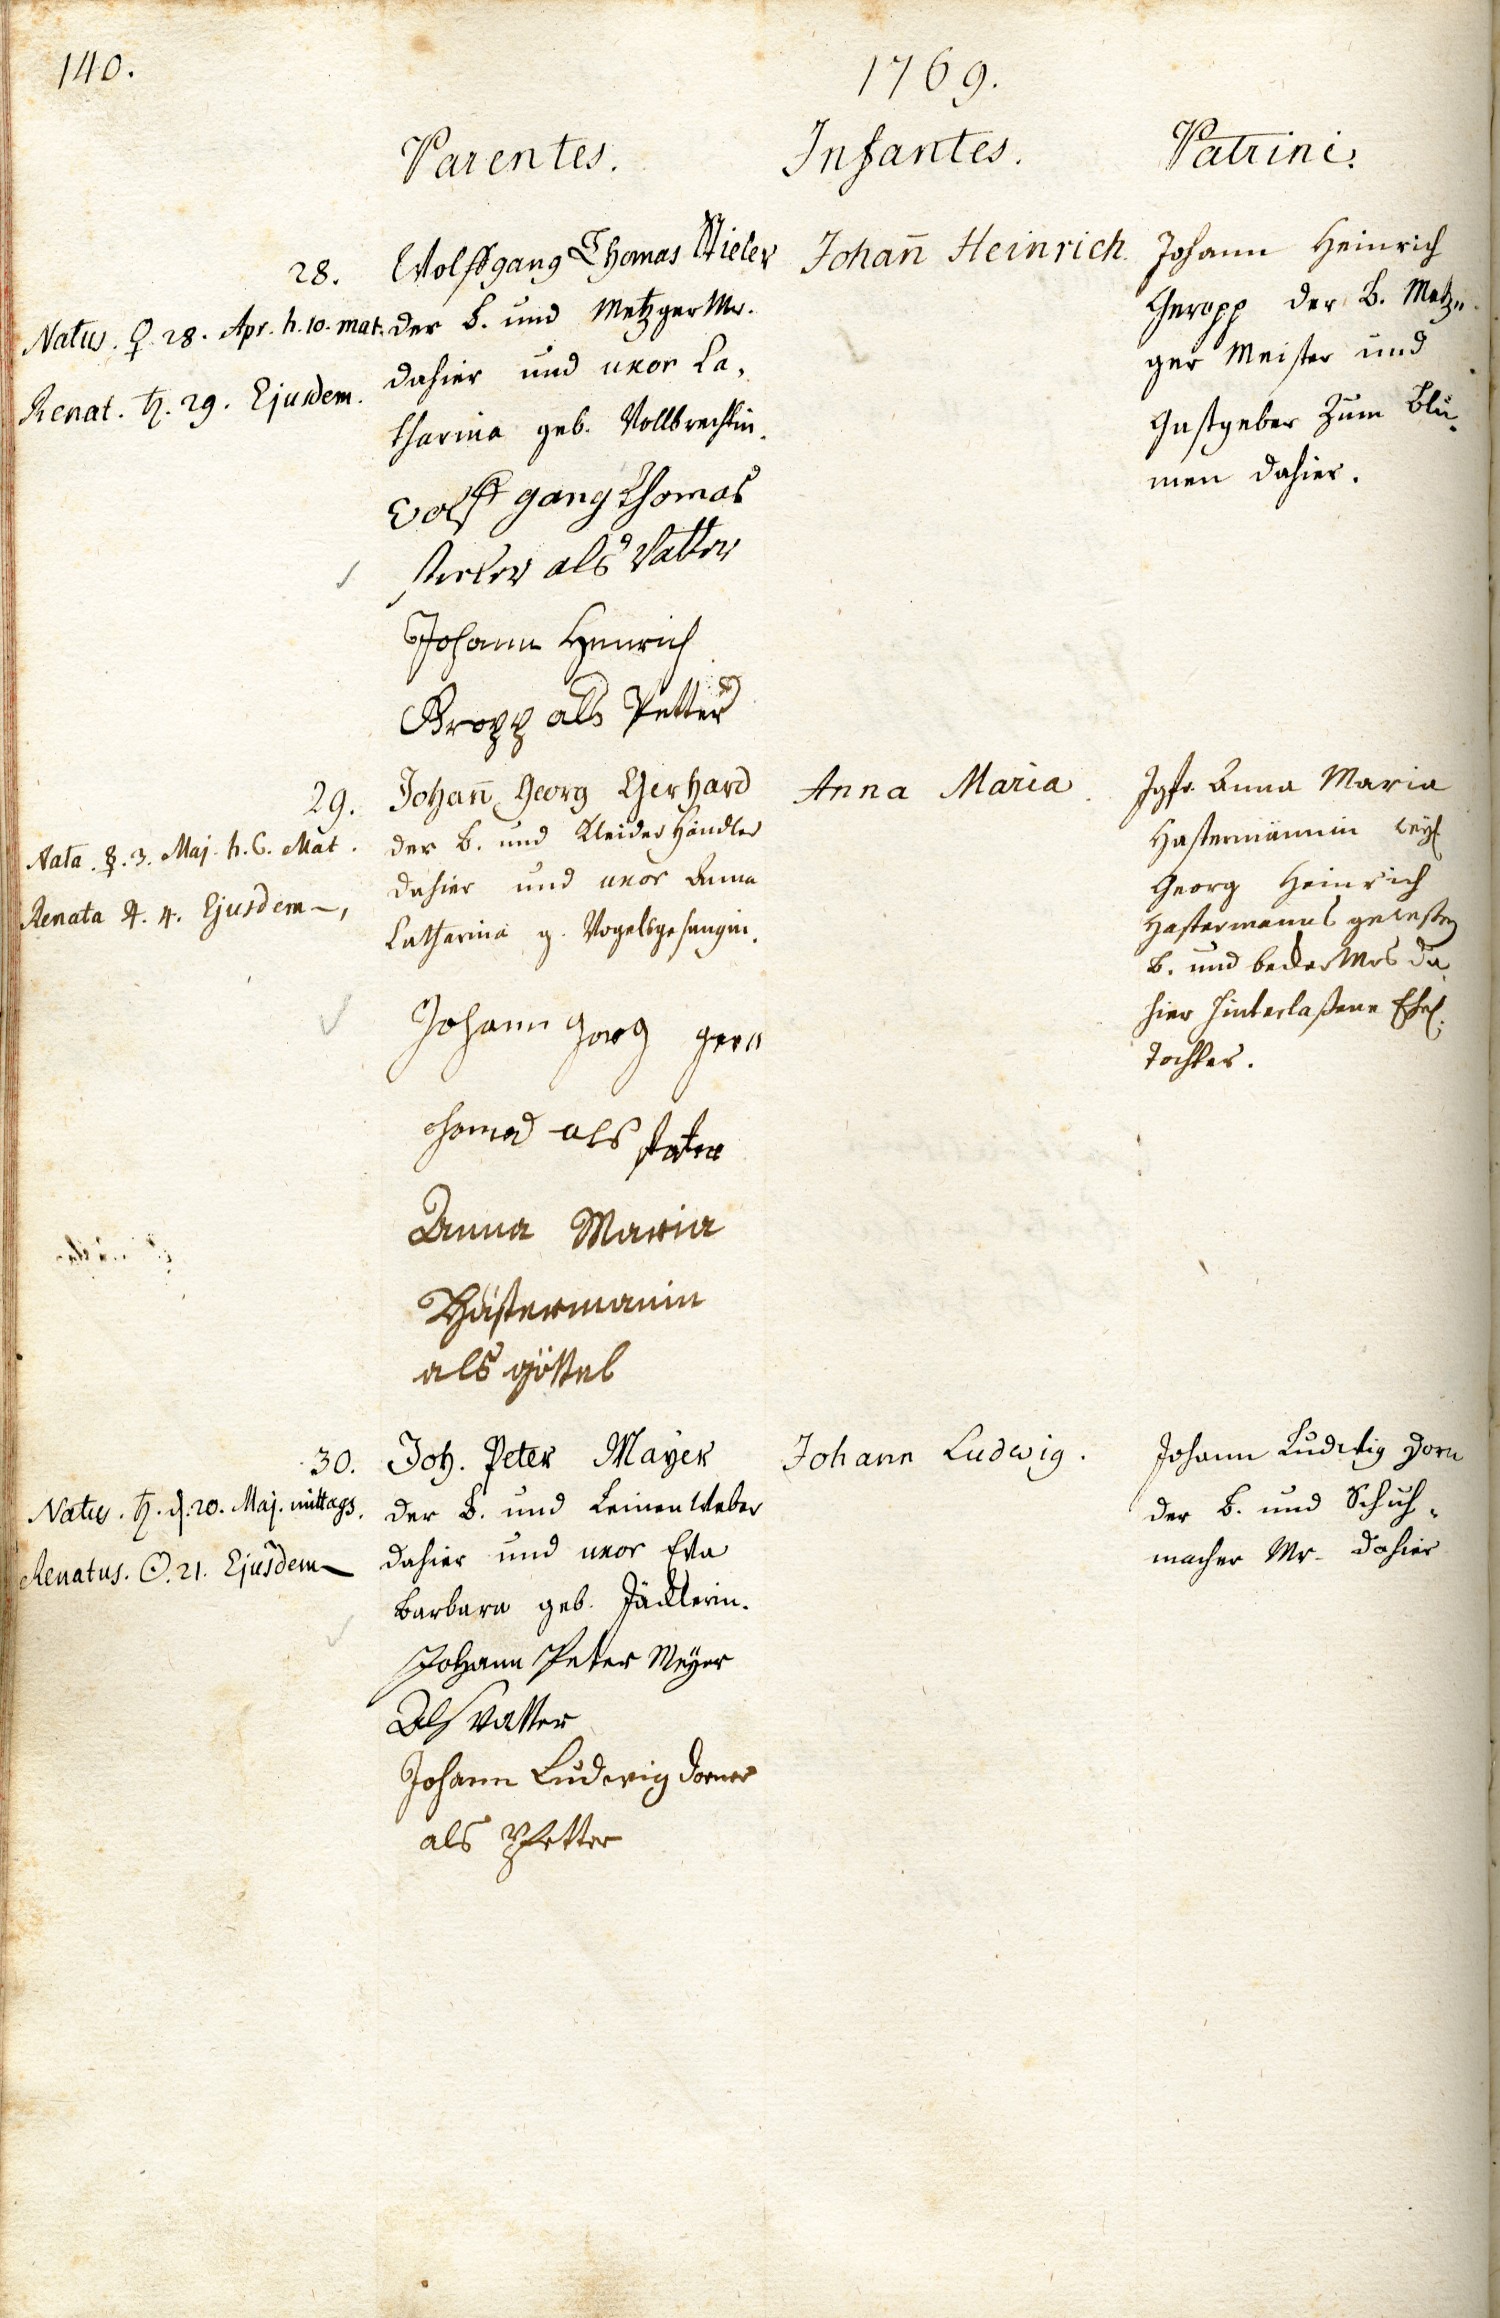 140.
1769.
Parentes.
Infantes.
Patrini.
28.
Natus. ♀. 28. Apr. h. 10. mat.
Renat. ♄. 29. Ejusdem.
Wolffgang Thomas
der b. und Metzger Mr.
dahier und uxor Ca-
tharina geb. Vollbrechtin.
Wolffgang Thomas
als Vatter
Johann Henrich
Gropp als Petter
Johan̄ Heinrich.
Johann Heinrich
Geropp der b. Metz-
ger Meister und
Gastgeber zum Blu-
men dahier.
29.
Nata. ☿. 3. Maj. h. 6. Mat.
Renata ♃. 4. Ejusdem
Johan̄ Georg Gerhard
der b. und Kleider Händler
dahier und uxor Anna
Catharina g. Vogelsgesangin.
Johann Georg ger-
als
Anna Maria
Hastermanin
als göttel
Anna Maria.
Jgfr. Anna Maria
Hastermännin weyl.
Georg Heinrich
Hastermanns gewesten
b. und becker Mrs da-
hier hinterlaßene Ehel.
Tochter.
30.
Natus. ♄. d. 20. Maj. mittags.
Renatus. ☉. 21. Ejusdem
Joh. Peter Mayer
der b. und Leinen Weber
dahier und uxor Eva
Barbara geb. Jäcklerin.
Johann Peter Meyer
Als Vatter
Johann Ludwig Dorner
als Pfetter
Johann Ludwig.
Johann Ludwig Dorn
der b. und Schuh-
macher Mr. dahier